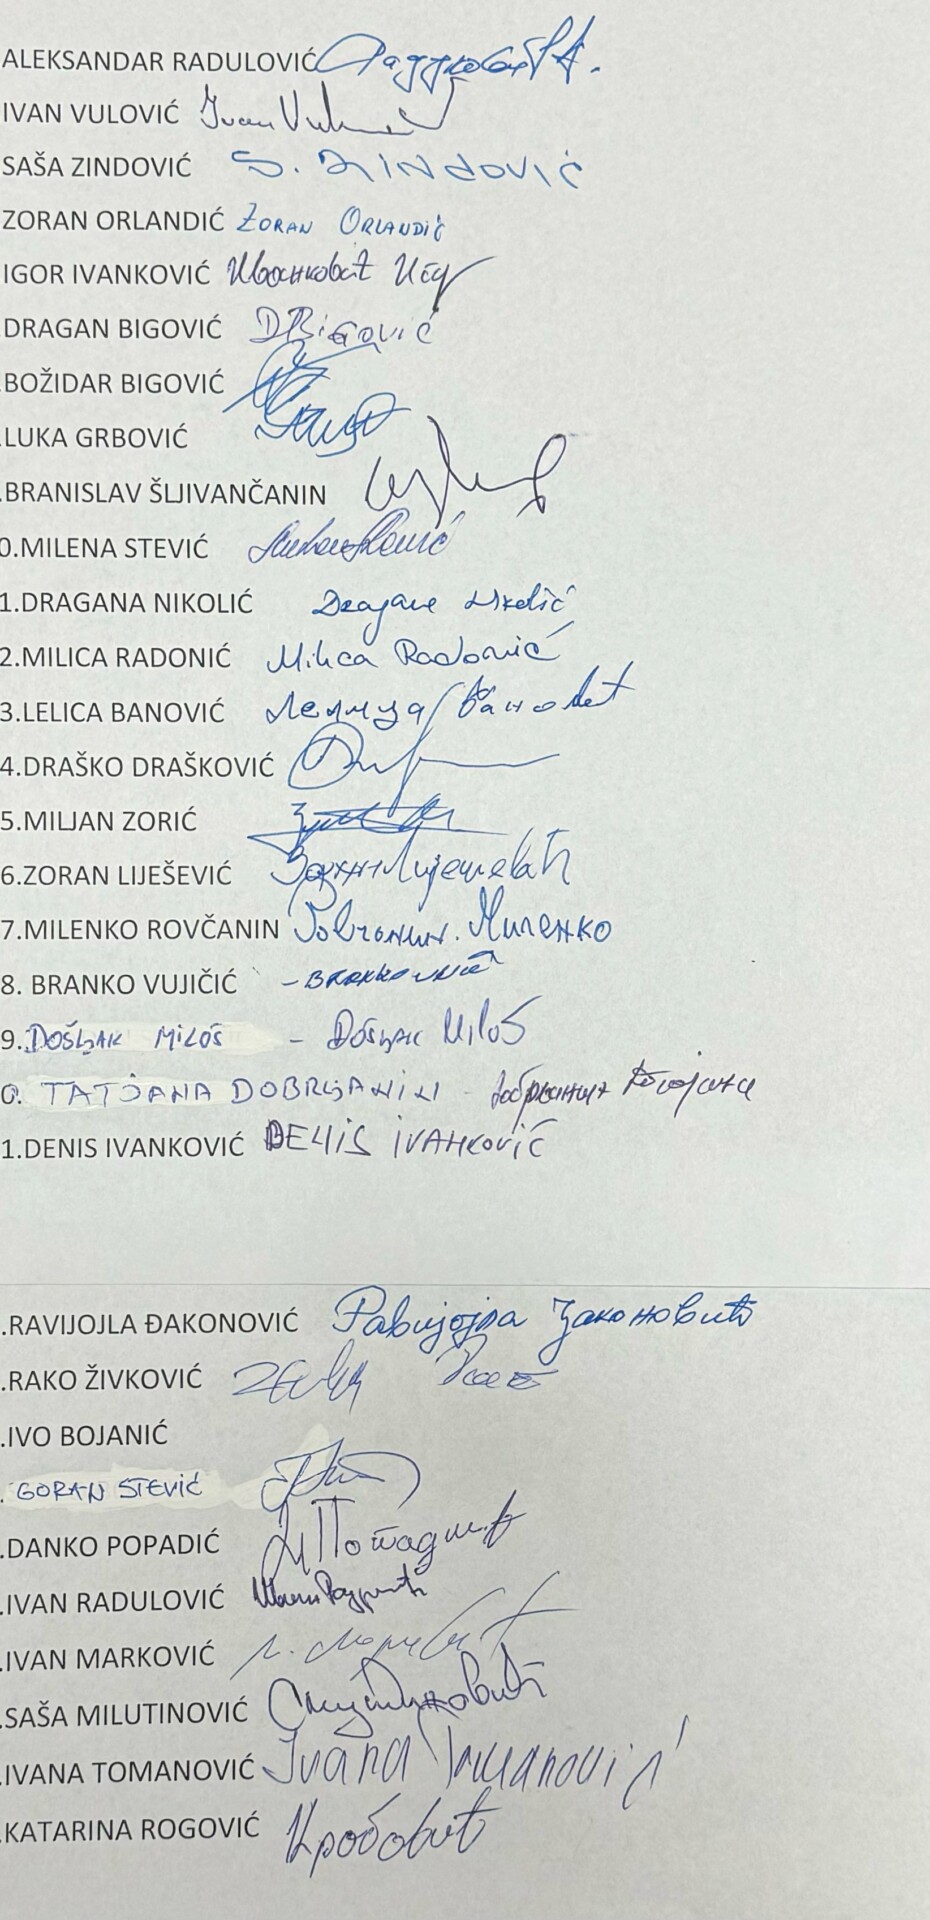 ALEKSANDAR RADULOVIĆ
IVAN VULOVIĆ Ivan
SAŠA ZINDOVIĆ S. ZINDOVIĆ
ZORAN ORLANDIĆ ZORAN ORLANDIĆ
IGOR IVANKOVIĆ Иванковић
.DRAGAN BIGOVIĆ D Bigović
.BOŽIDAR BIGOVIĆ
.LUKA GRBOVIĆ
.BRANISLAV ŠLJIVANČANIN
0.MILENA STEVIĆ
1.DRAGANA NIKOLIĆ Dragana Nikolić
2.MILICA RADONIĆ Milica Radonić
3.LELICA BANOVIĆ Лелица Бановић
4.DRAŠKO DRAŠKOVIĆ
5.MILJAN ZORIĆ
6.ZORAN LIJEŠEVIĆ Зоран Лијешевић
7.MILENKO ROVČANIN Ровчанин. Миленко
8. BRANKO VUJIČIĆ -
9.DOŠLJAK MILOŠ - DOŠLJAK MILOŠ
0. TATJANA DOBRLJANIN - Татјана
1.DENIS IVANKOVIĆ DENIS IVANKOVIĆ
.RAVIJOJLA ĐAKONOVIĆ Равијојла Ђаконовић
.RAKO ŽIVKOVIĆ
.IVO BOJANIĆ
. GORAN STEVIĆ
.DANKO POPADIĆ Попадић
.IVAN RADULOVIĆ
.IVAN MARKOVIĆ
.SAŠA MILUTINOVIĆ
.IVANA TOMANOVIĆ Ivana Tomanović
.KATARINA ROGOVIĆ